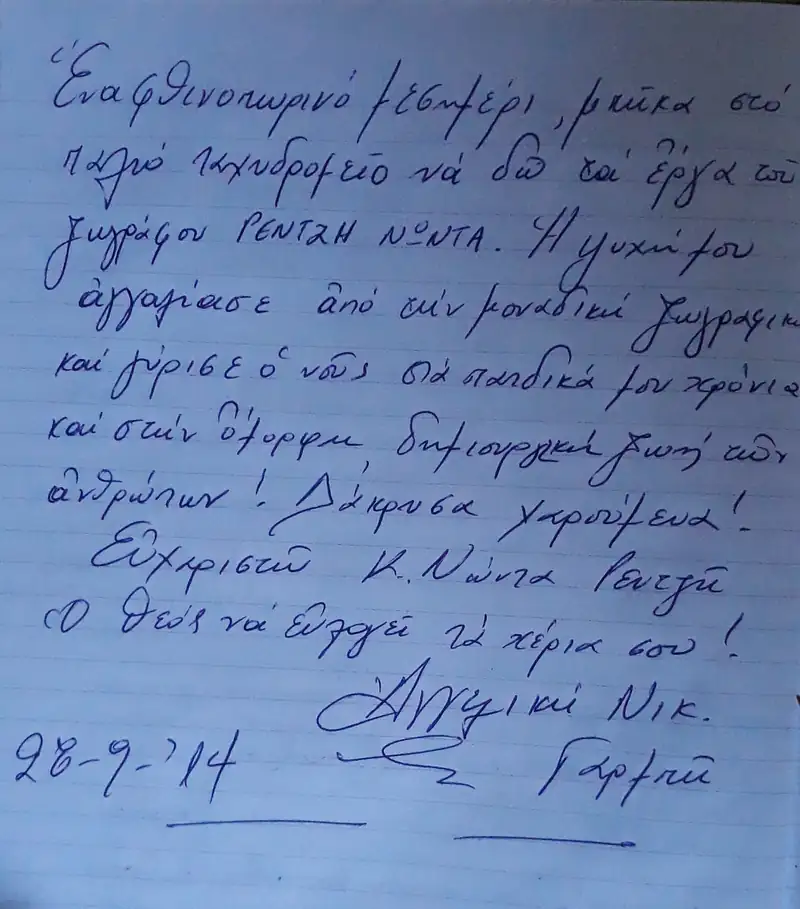 Ἕνα φθινοπωρινό μεσημέρι, μπῆκα στό
παλιό ταχυδρομεῖο νά δῶ τά ἔργα τοῦ
ζωγράφου ΡΕΝΤΖΗ ΝΩΝΤΑ. Ἡ ψυχή μου
ἀγγαλίασε ἀπό τήν μοναδική ζωγραφικ
καί γύρισε ὁ νοῦς στά παιδικά μου χρόνια
καί στήν ὄμορφη, δημιουργική ζωή τῶν
ἀνθρώπων! Δάκρυσα χαρούμενα!
Εὐχαριστῶ Κ. Νώντα Ρεντζῆ
Ὁ Θεός νά εὐλογεῖ τά χέρια σου!
Ἀγγελική Νικ.
28-9-'14 Γαρμπῆ